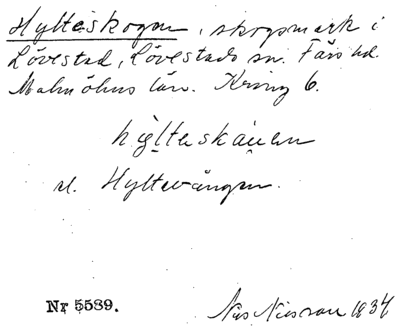 Hylteskogen, skogsmark i
Lövestad, Lövestads sn. Färs hd.
Malmöhus län. Kring 6.
hỳltaskáuen
el. Hyltevången.
Nr 5539.
Nils Nilsson 1934